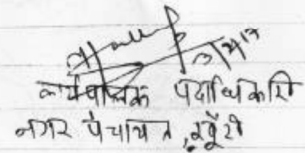 कार्यपालक पदाधिकारी
नगर पंचायत, खूँटी